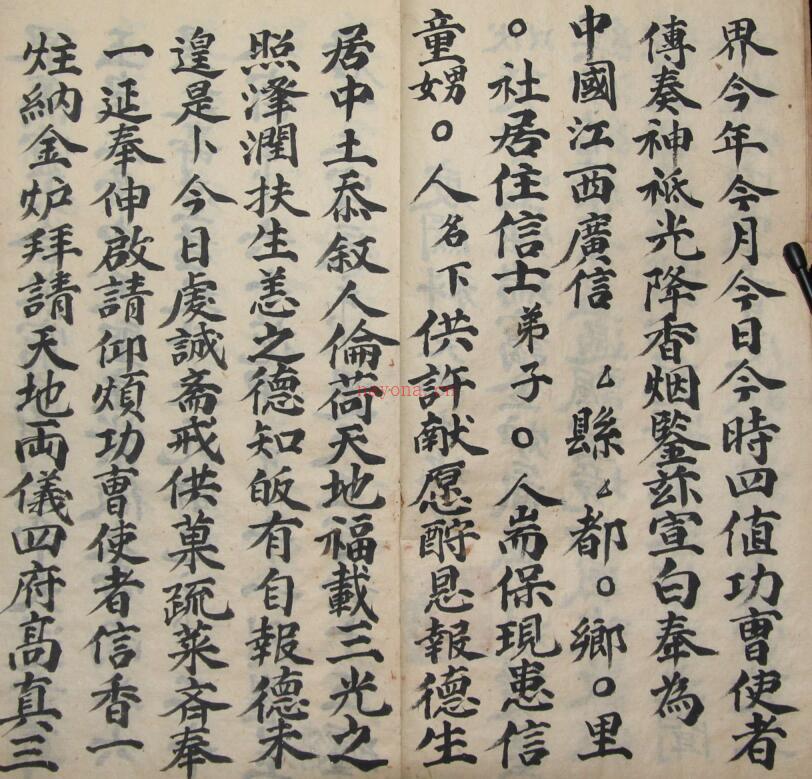 界今年今月今日今時四值功曹使者
傳奏神祇光降香烟鑒玆宣白奉為
中國江西廣信 厶縣厶都○鄉○里
○社居住信士弟子○人耑保現患信
童男嬭○人名下供許献愿酧恩報德生
居中土忝叙人倫荷天地福載三光之
照泽潤扶生恙之德知皈有自報德未
遑是卜今日虔誠斋戒供菓疏菜斉奉
一延奉伸啟請仰煩功曹使者信香一
炷納金炉拜請天地両儀四府高真三
nayona.cn